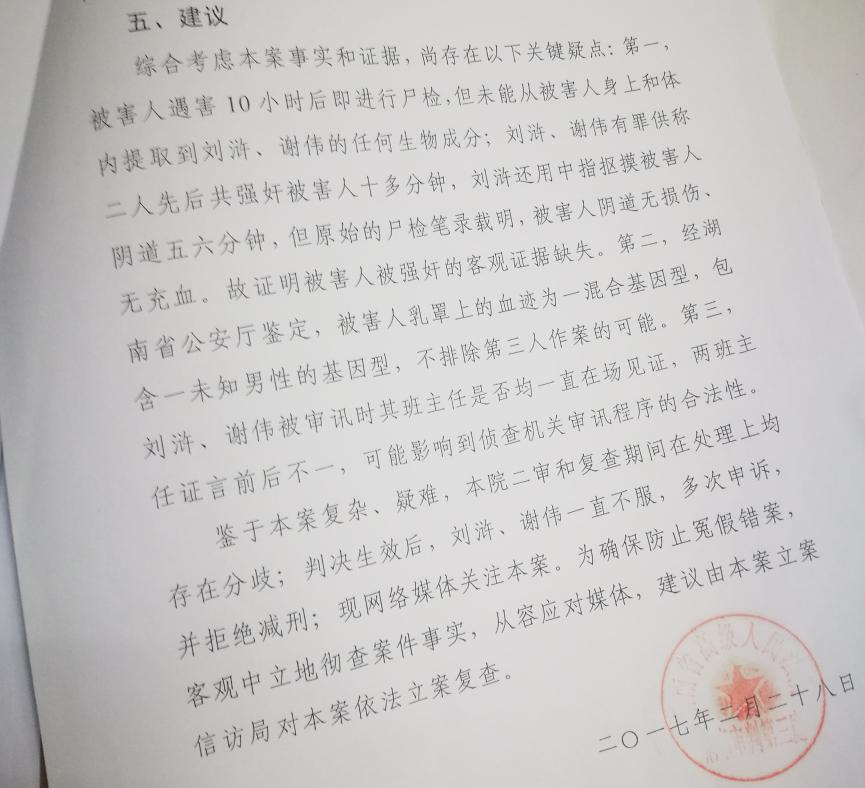 五、建议
综合考虑本案事实和证据，尚存在以下关键疑点：第一，
被害人遇害 10 小时后即进行尸检，但未能从被害人身上和体
内提取到刘浒、谢伟的任何生物成分；刘浒、谢伟有罪供称
二人先后共强奸被害人十多分钟，刘浒还用中指抠摸被害人
阴道五六分钟，但原始的尸检笔录载明，被害人阴道无损伤、
无充血。故证明被害人被强奸的客观证据缺失。第二，经湖
南省公安厅鉴定，被害人乳罩上的血迹为一混合基因型，包
含一未知男性的基因型，不排除第三人作案的可能。第三，
刘浒、谢伟被审讯时其班主任是否均一直在场见证，两班主
任证言前后不一，可能影响到侦查机关审讯程序的合法性。
鉴于本案复杂、疑难，本院二审和复查期间在处理上均
存在分歧；判决生效后，刘浒、谢伟一直不服，多次申诉，
并拒绝减刑；现网络媒体关注本案。为确保防止冤假错案，
客观中立地彻查案件事实，从容应对媒体，建议由本案立案
信访局对本案依法立案复查。
南省高级人民法
二〇一七年二月二十八日